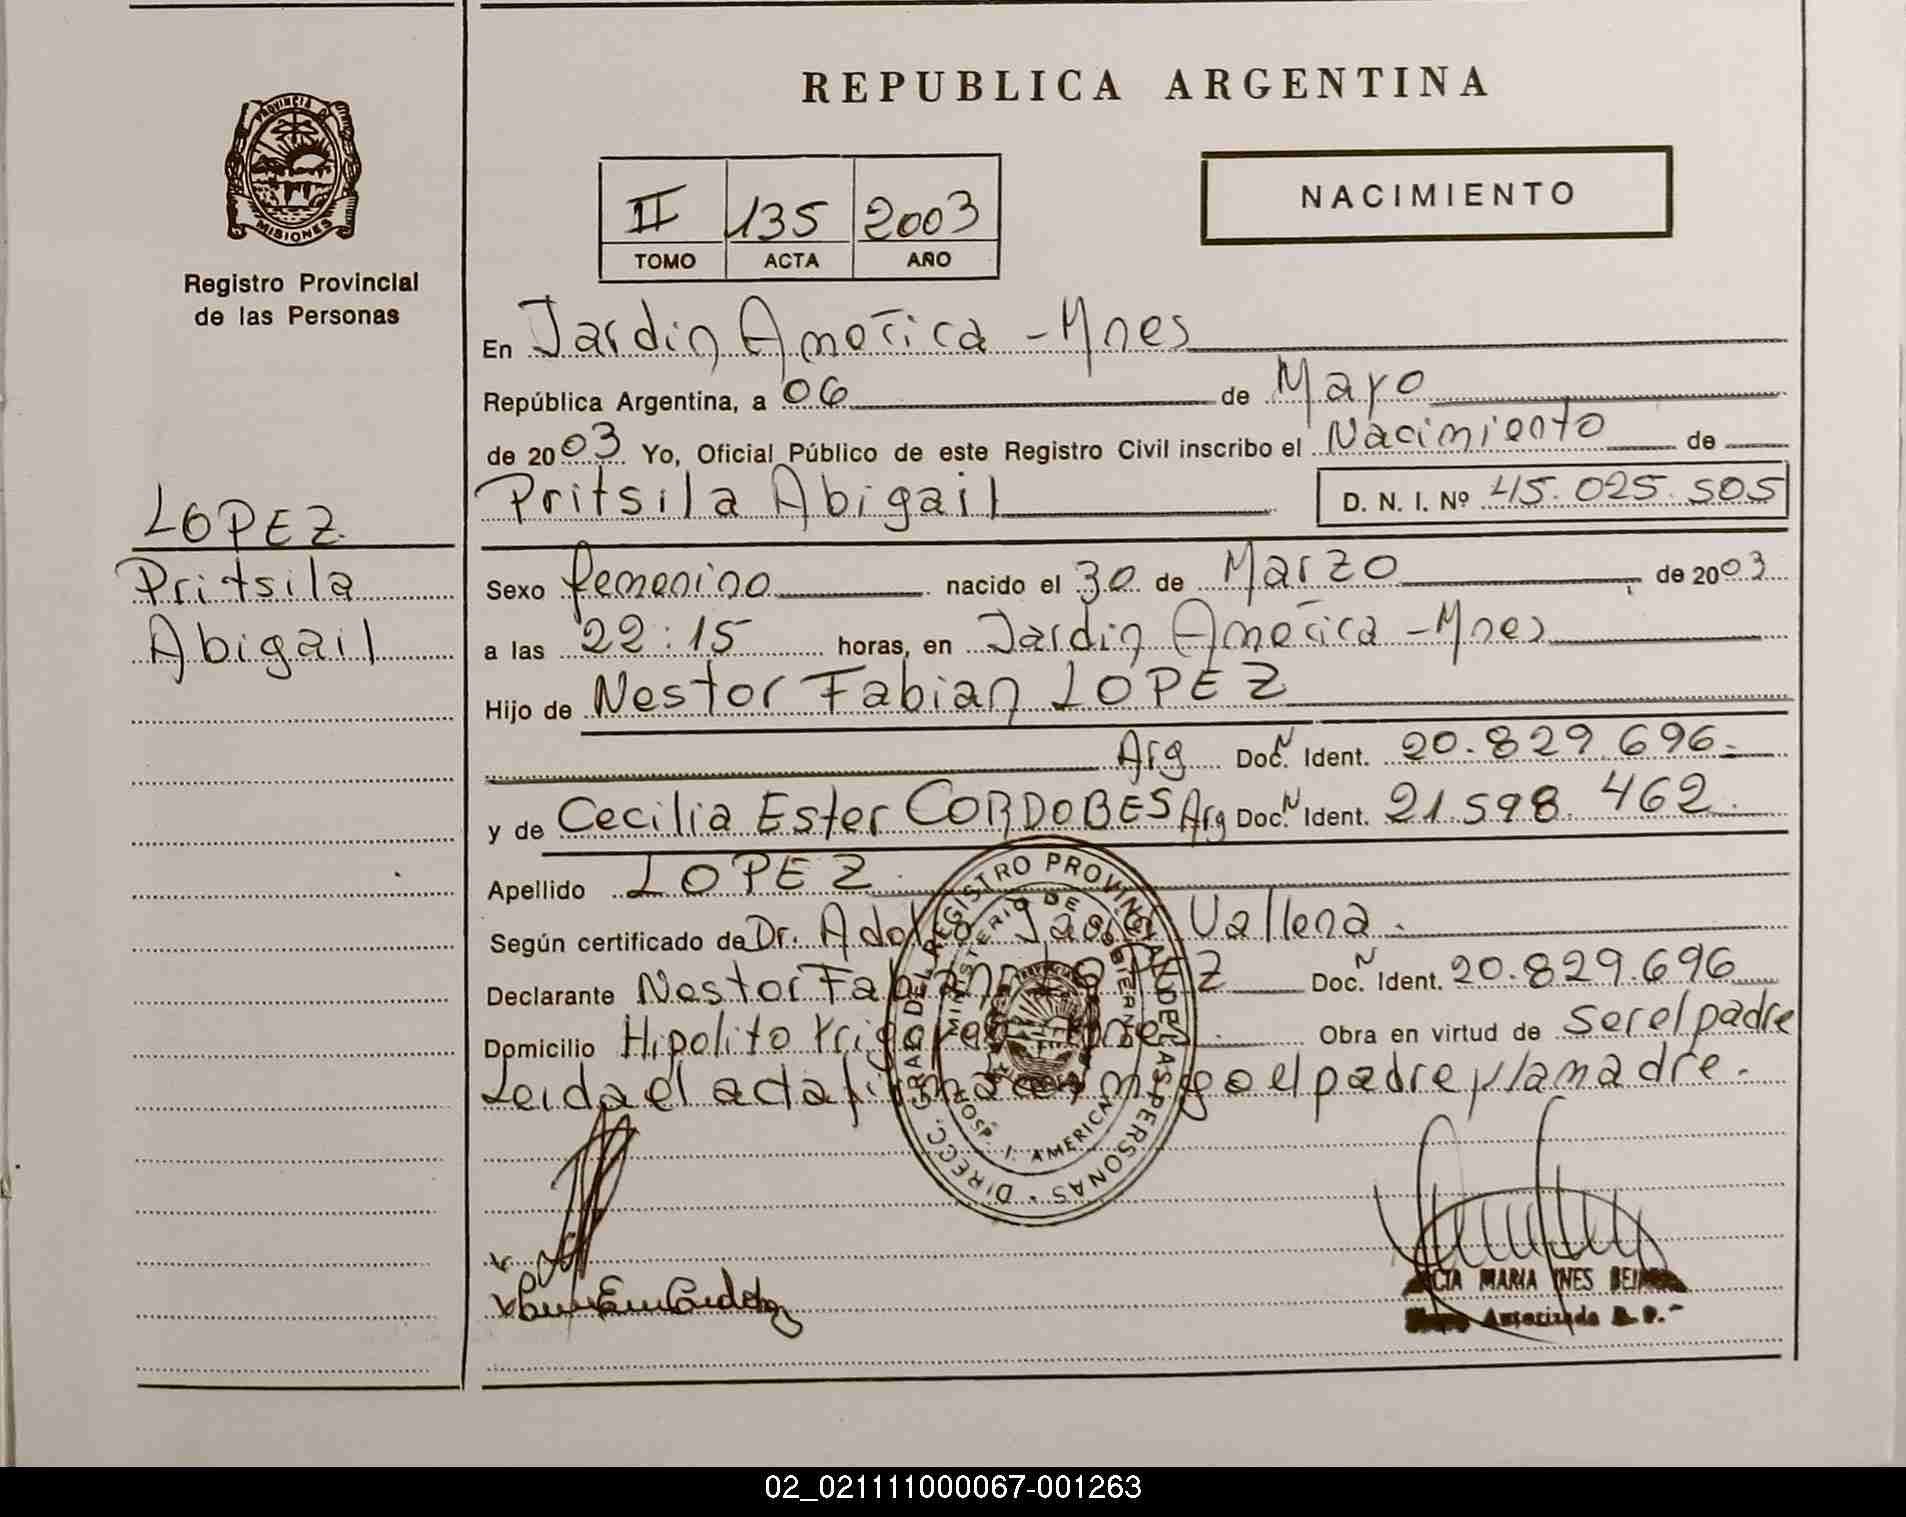 REPUBLICA ARGENTINA
PROVINCIA DE
MISIONES
Registro Provincial
de las Personas
NACIMIENTO
II 135 2003
TOMO ACTA AÑO
En Jardin America - Mnes
República Argentina, a 06 de Mayo
de 2003 Yo, Oficial Público de este Registro Civil inscribo el Nacimiento de
Pritsila Abigail D. N. I. Nº 45.025.505
LOPEZ
Pritsila
Abigail
Sexo femenino nacido el 30 de Marzo de 2003
a las 22:15 horas, en Jardin America - Mnes
Hijo de Nestor Fabian LOPEZ
Arg Doc. N Ident. 20.829.696.-
y de Cecilia Ester CORDOBES Arg Doc. N Ident. 21.598.462.
Apellido LOPEZ.
Según certificado de Dr. Adolfo Vallena.
Declarante Nestor Fabian LOPEZ Doc. N Ident. 20.829.696
Domicilio Hipolito Yrigoyen Obra en virtud de ser el padre
Leida el acta firman conmigo el padre y la madre.
DIRECC. GRAL. DEL REGISTRO PROVINCIAL DE LAS PERSONAS
MINISTERIO DE GOBIERNO
HOSP. J. AMERICA
MARIA INES
Autorizada R. P.
02_021111000067-001263